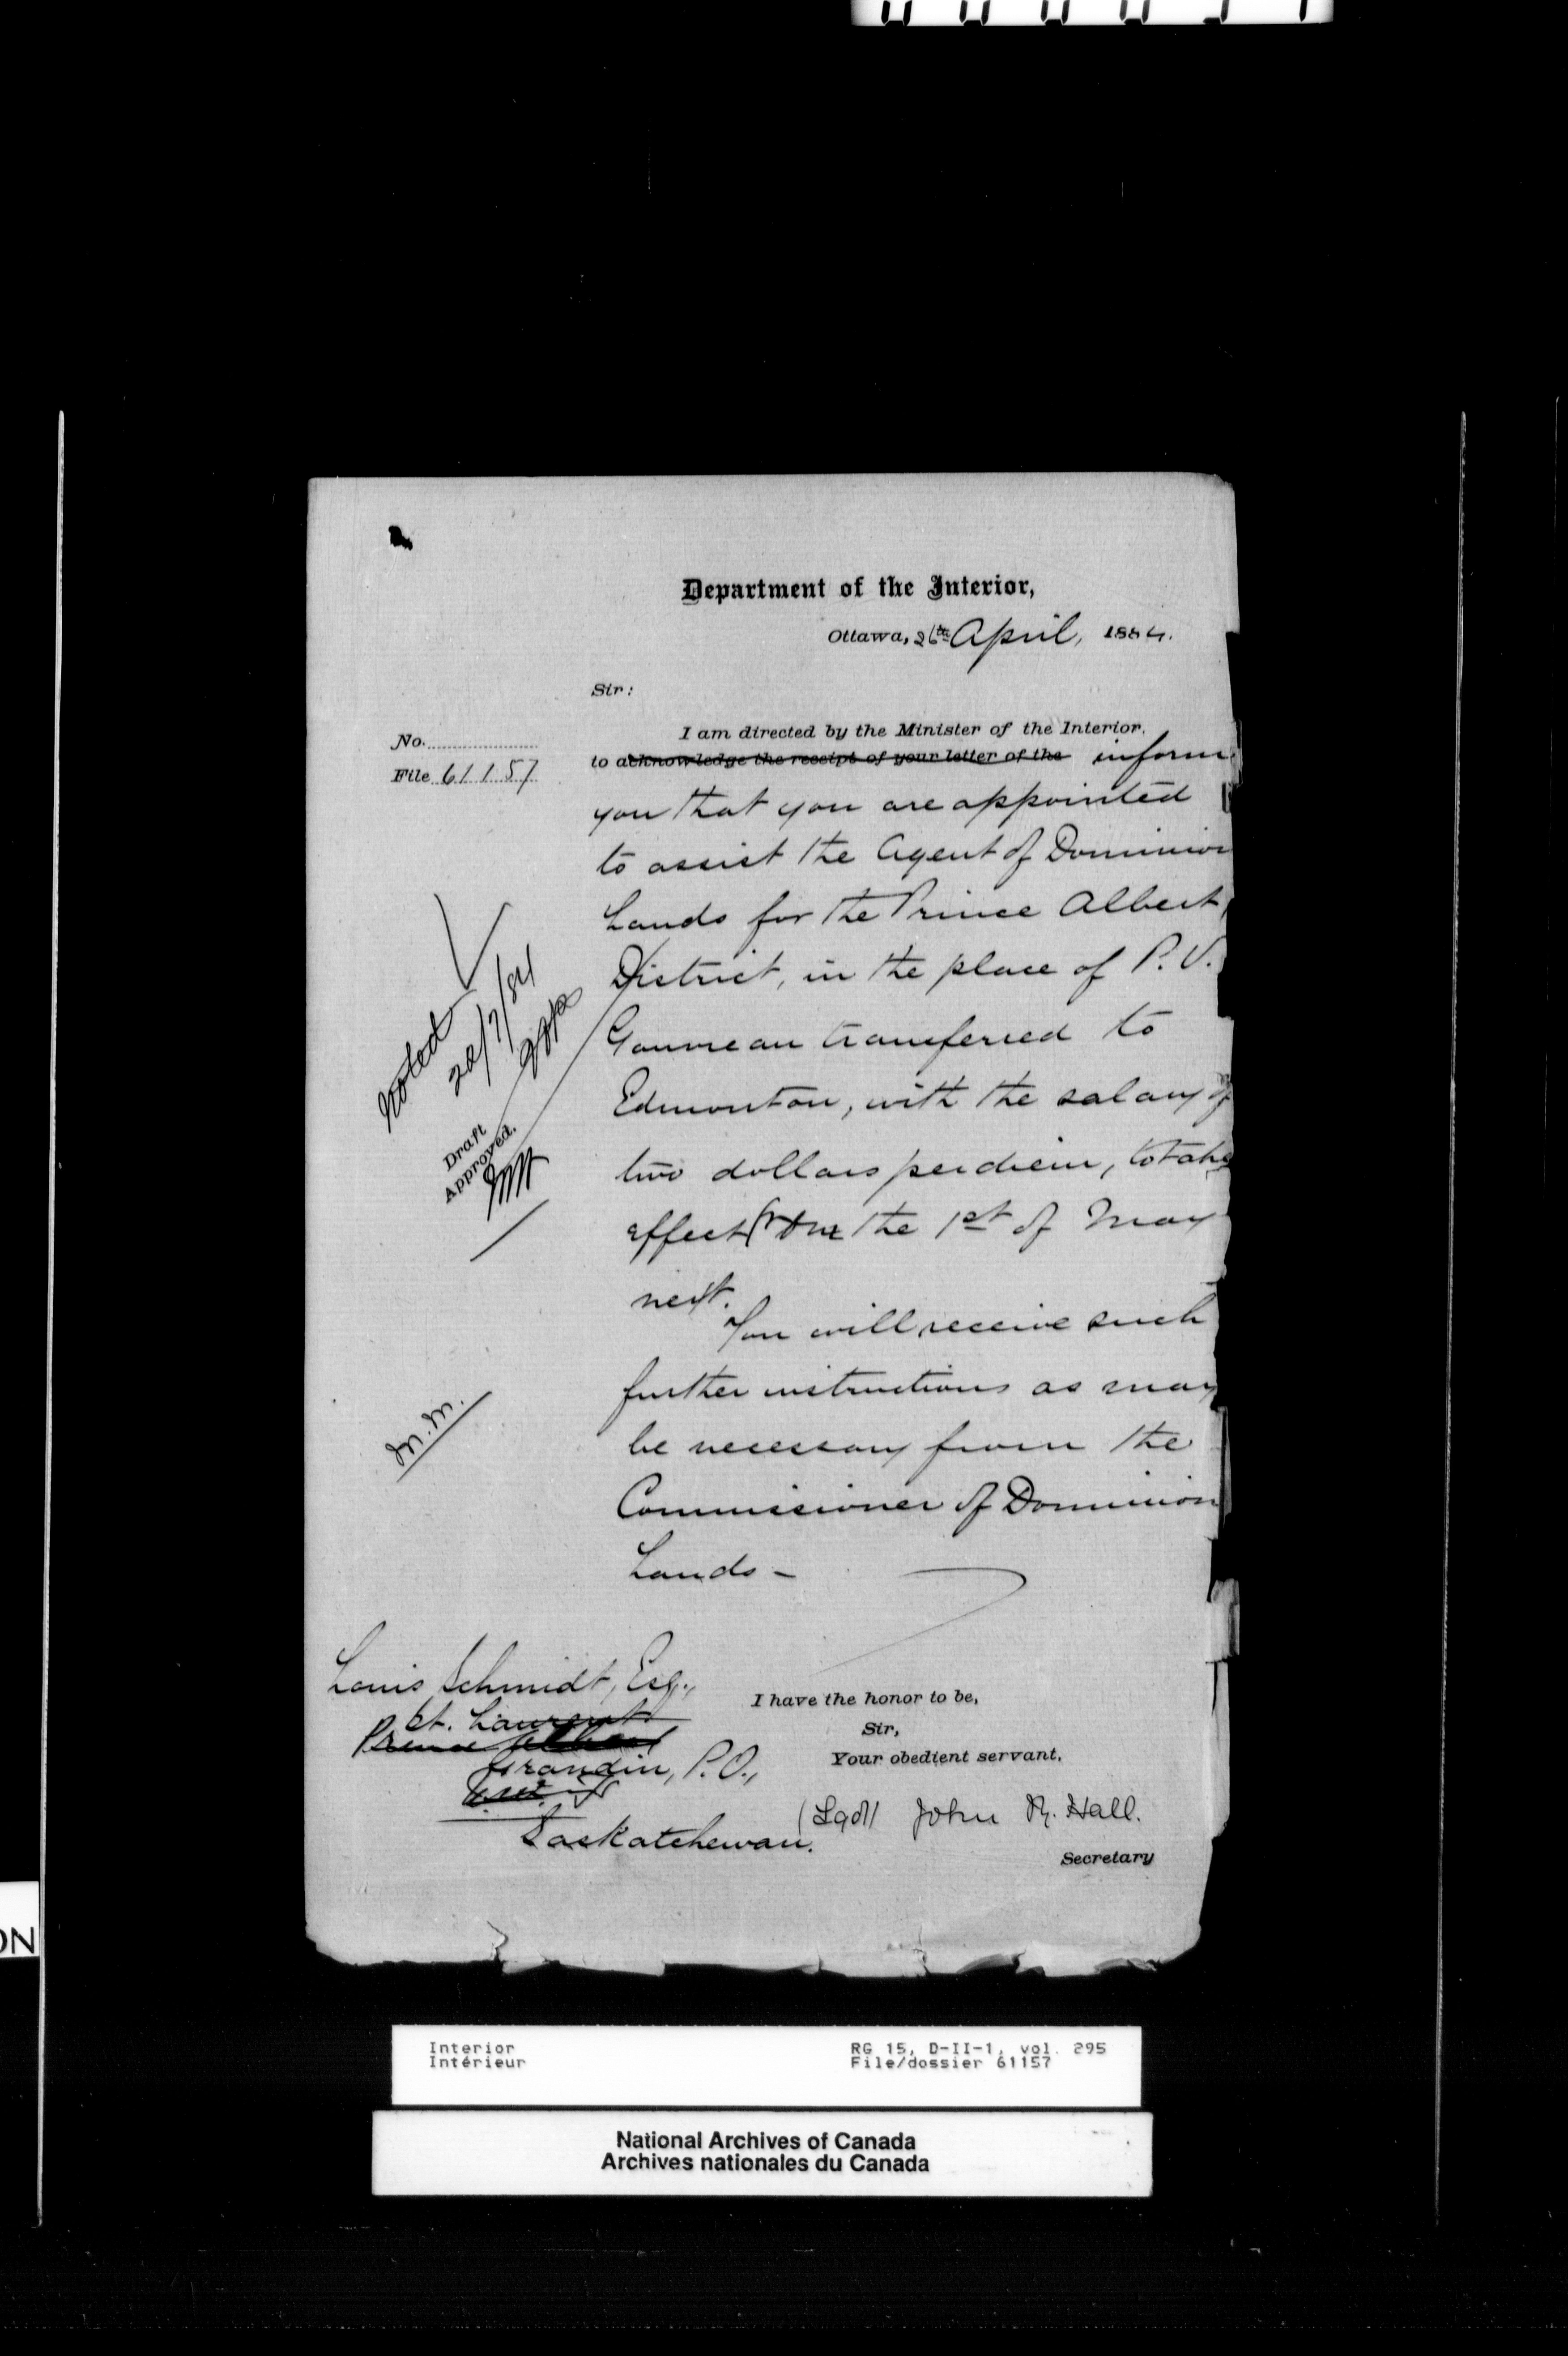 Department of the Interior,
Ottawa, 26th April, 1884.
Sir:
No.
File 61157
I am directed by the Minister of the Interior,
to acknowledge the receipt of your letter of the inform
you that you are appointed
to assist the Agent of Dominion
Lands for the Prince Albert
District, in the place of P. V.
Gauvreau transferred to
Edmonton, with the salary of
two dollars per diem, to take
effect from the 1st of May
next.
You will receive such
further instructions as may
be necessary from the
Commissioner of Dominion
Lands -
Noted
Draft
Approved.
M.M.
Louis Schmidt, Esq.,
St. Laurent
Prince Albert
Grandin, P.O.,
Saskatchewan.
I have the honor to be,
Sir,
Your obedient servant,
(Sgd) John R. Hall.
Secretary
ON
Interior
Intérieur
RG 15, D-II-1, vol. 295
File/dossier 61157
National Archives of Canada
Archives nationales du Canada